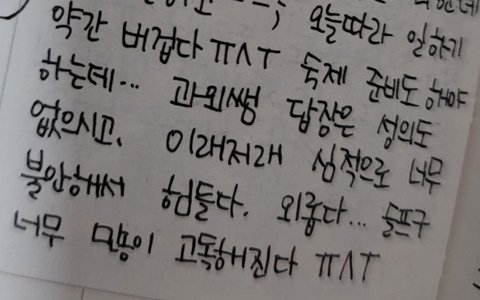 ; 오늘따라 일하기
약간 버겁다 ㅠㅅㅜ 숙제 준비도 해야
하는데... 과외쌤 답장은 성의도
없으시고, 이래저래 심적으로 너무
불안해서 힘들다. 외롭다... 슬프구
너무 많이 고독해진다 ㅠㅅㅜ